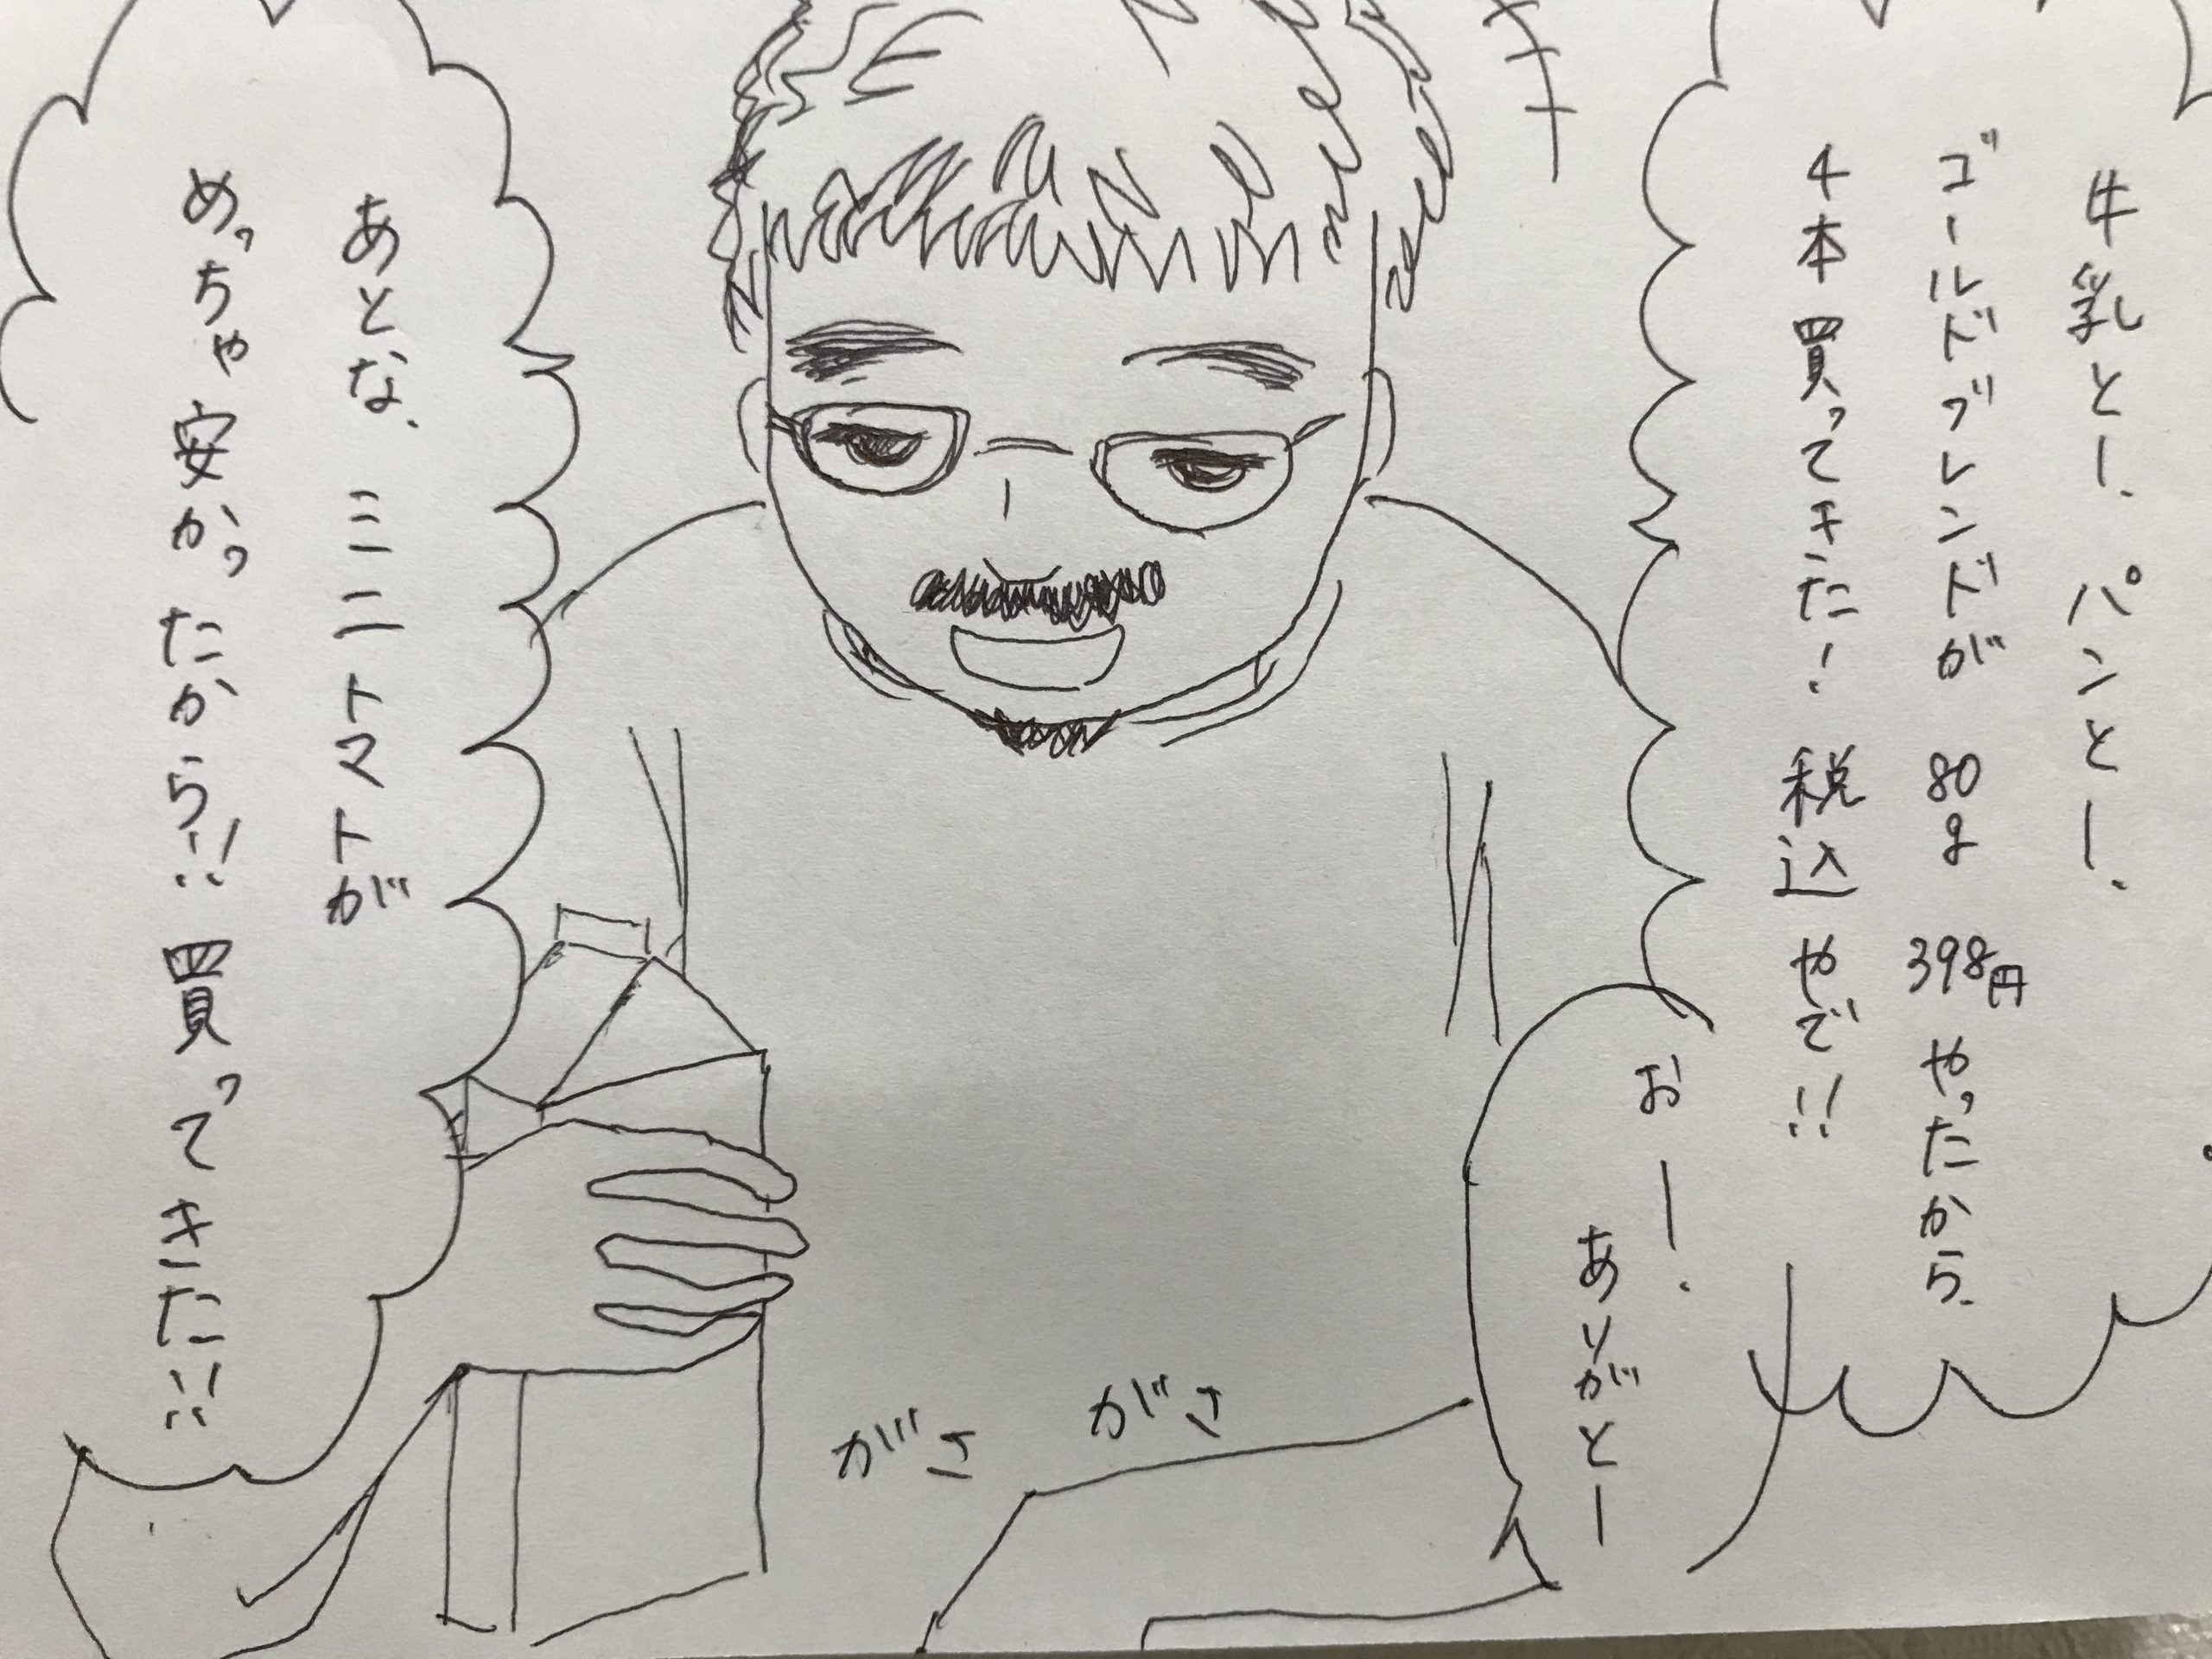 牛乳とー、パンとー、
ゴールドブレンドが 80g 398円 やったから、
4本買ってきた! 税込やで!!
おー、
ありがとー
がさ がさ
あとな、ミニトマトが
めっちゃ安かったから!! 買ってきた!!